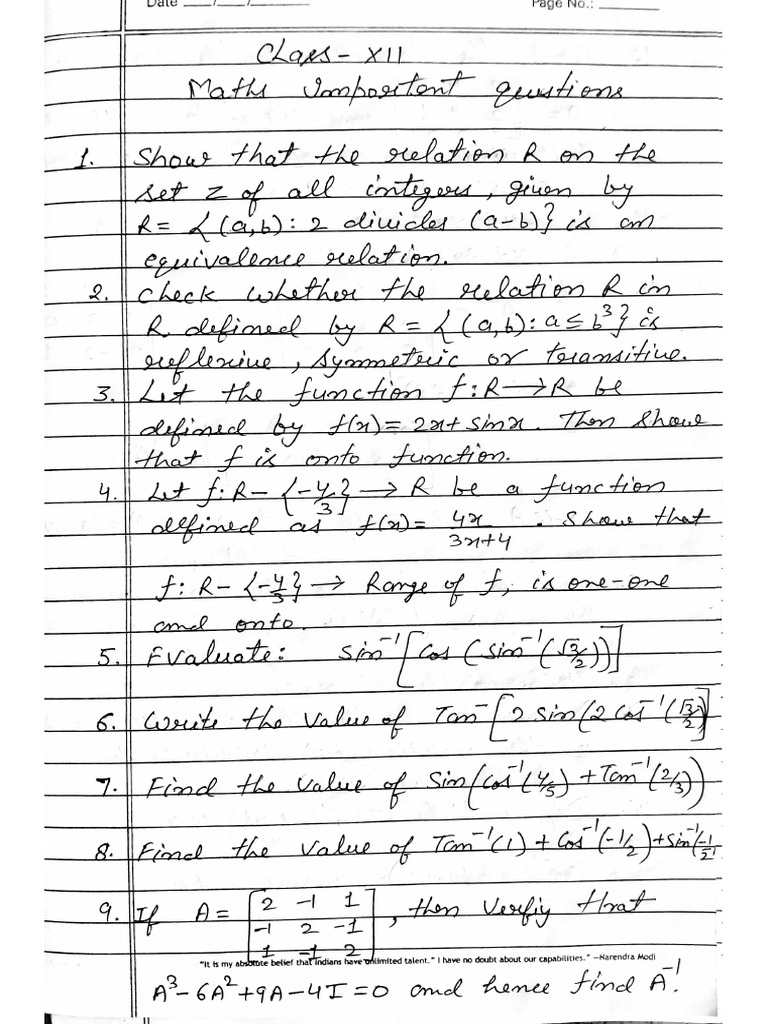 Date ___/___/___ Page No.: ______
Class - XII
Maths Important questions
1. Show that the relation R on the
set Z of all integers, given by
R = {(a,b): 2 divides (a-b)} is an
equivalence relation.
2. Check whether the relation R in
R defined by R = {(a,b): a ≤ b³} is
reflexive, symmetric or transitive.
3. Let the function f: R → R be
defined by f(x) = 2x + sinx. Then show
that f is onto function.
4. Let f: R - {-4/3} → R be a function
defined as f(x) = 4x/3x+4. Show that
f: R - {-4/3} → Range of f, is one-one
and onto.
5. Evaluate: sin⁻¹[cos(sin⁻¹(√3/2))]
6. Write the value of Tan⁻[2 sin(2 cos⁻¹(√3/2)]
7. Find the value of Sin(cos⁻¹(4/5) + Tan⁻¹(2/3))
8. Find the value of Tan⁻¹(1) + Cos⁻¹(-1/2) + sin⁻¹(-1/2
9. If A = [2 -1 1
-1 2 -1
1 -1 2], then verfiy that
"It is my absolute belief that Indians have unlimited talent." I have no doubt about our capabilities." –Narendra Modi
A³ - 6A² + 9A - 4I = 0 and hence find A⁻¹.